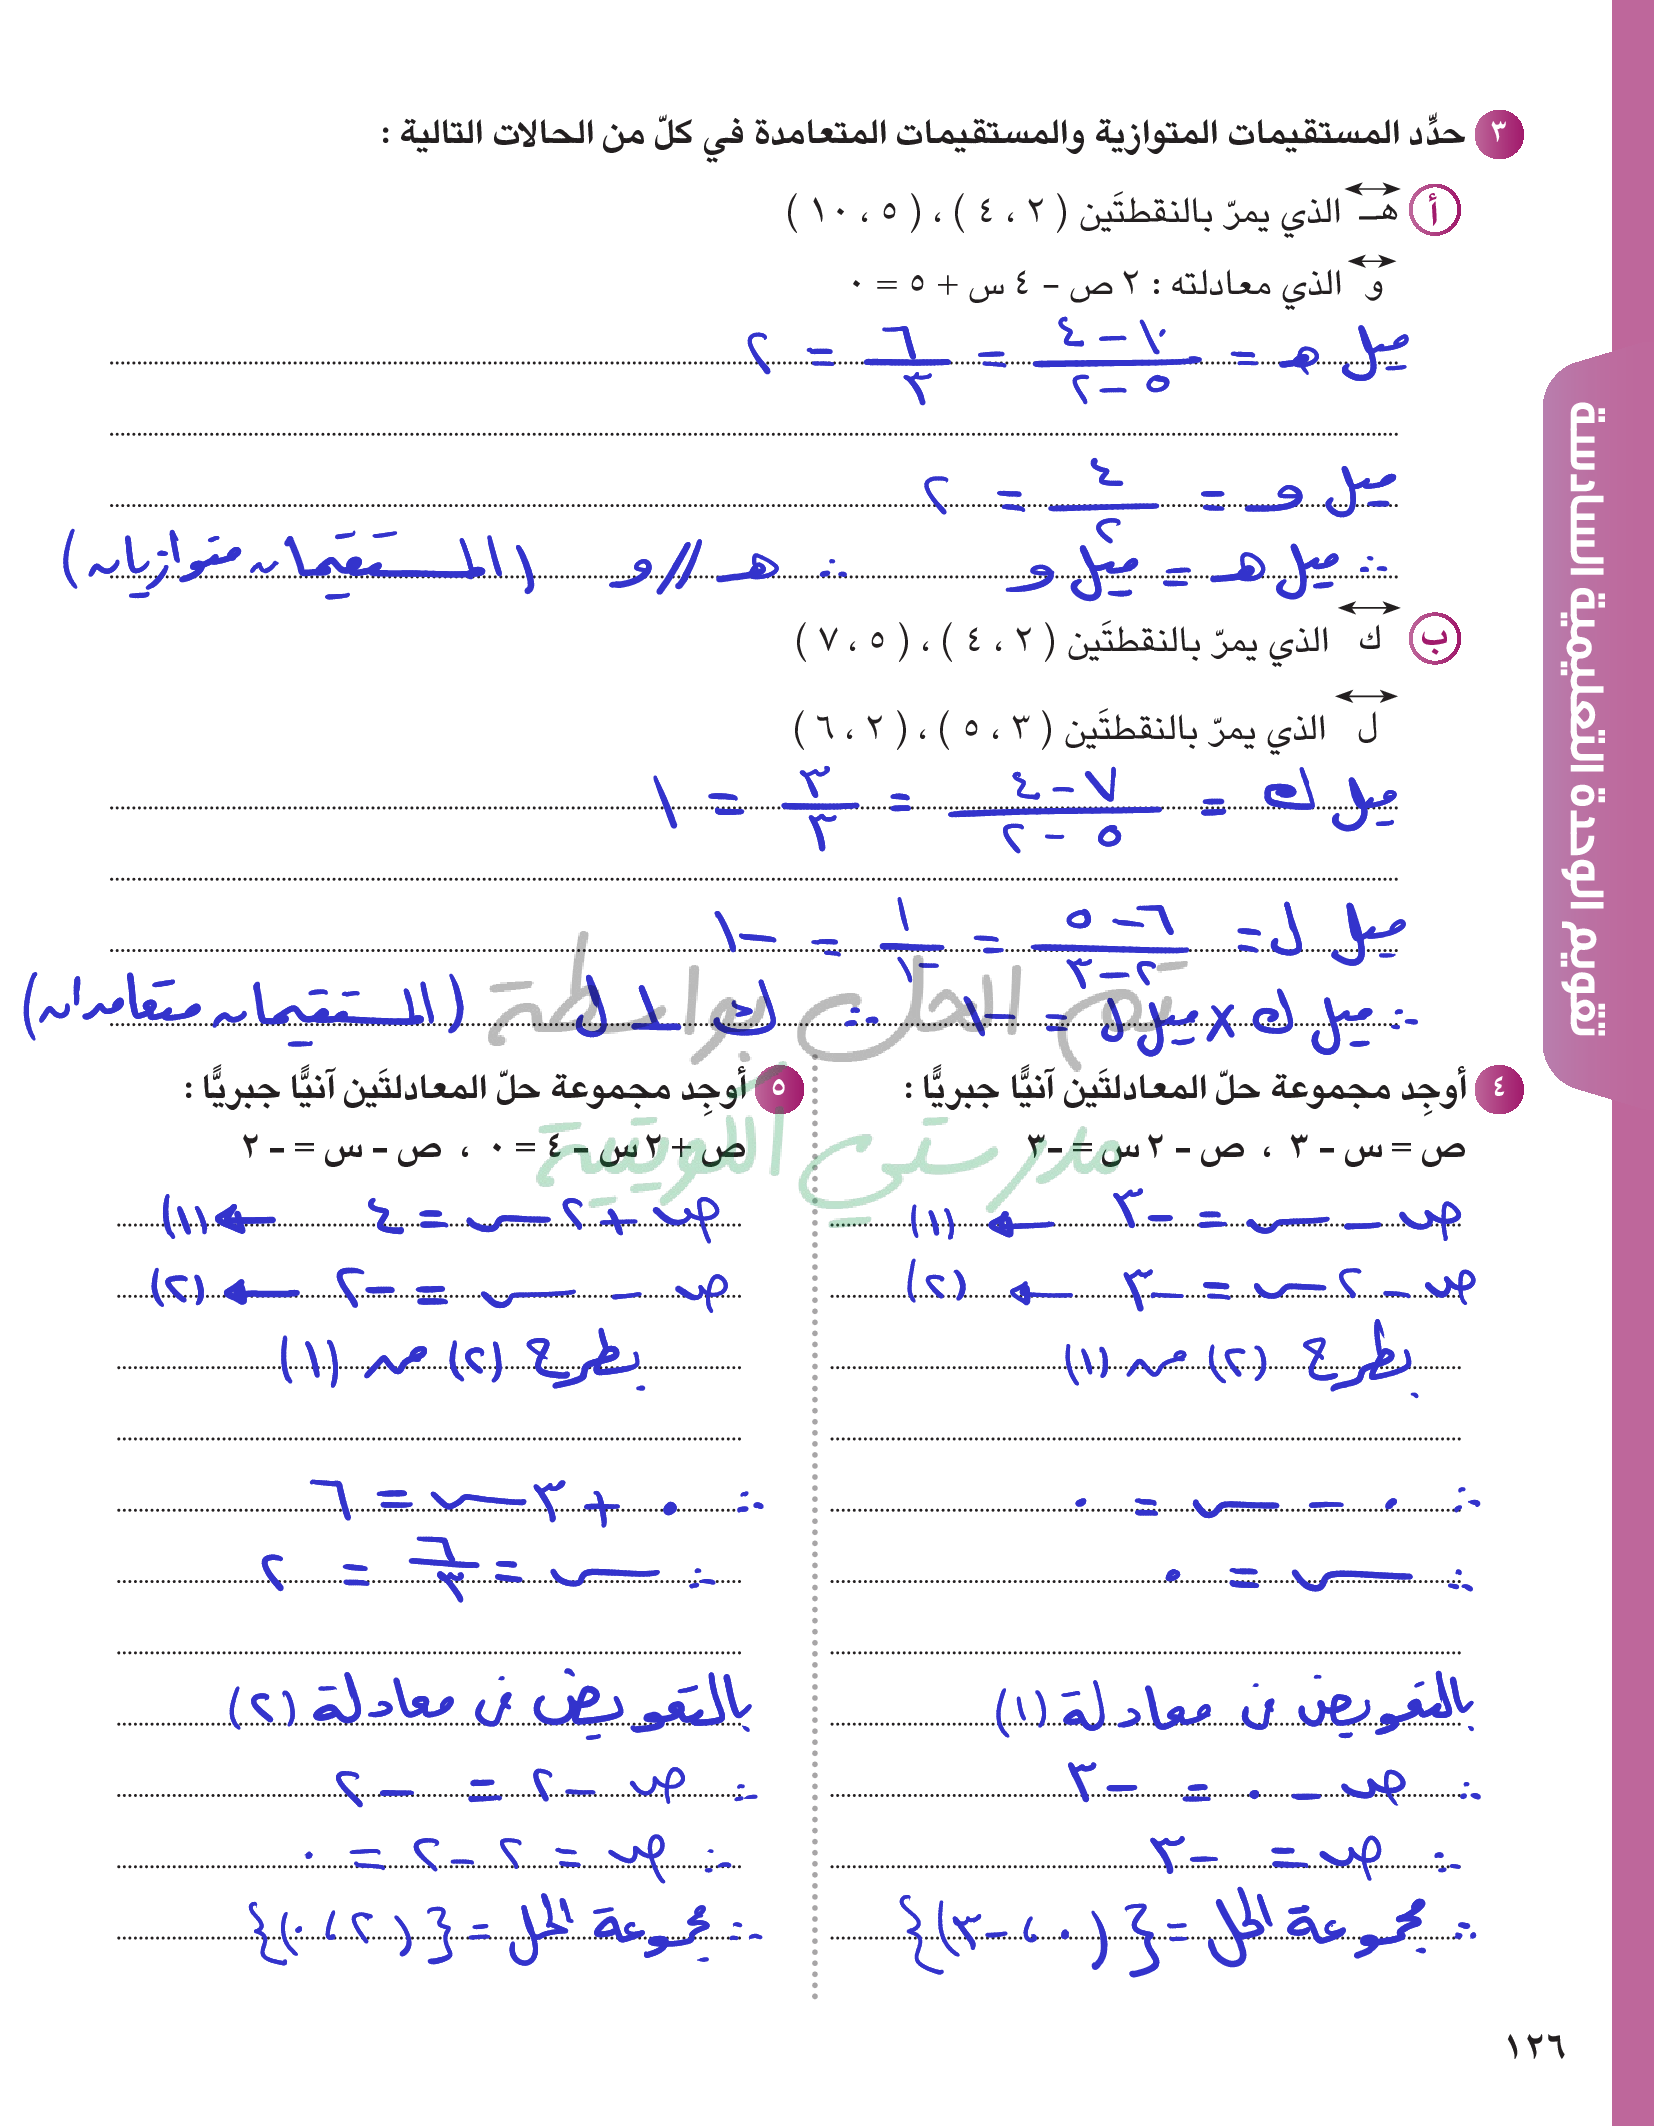 ٣ حدِّد المستقيمات المتوازية والمستقيمات المتعامدة في كلّ من الحالات التالية :
أ هـ الذي يمرّ بالنقطتَين ( ٢ ، ٤ ) ، ( ٥ ، ١٠ )
و الذي معادلته : ٢ ص - ٤ س + ٥ = ٠
ميل هـ = (١٠ - ٤)/(٥ - ٢) = ٦/٣ = ٢
ميل و = ٤/٢ = ٢
∴ ميل هـ = ميل و ∴ هـ // و ( المستقيمان متوازيان )
ب ك الذي يمرّ بالنقطتَين ( ٢ ، ٤ ) ، ( ٥ ، ٧ )
ل الذي يمرّ بالنقطتَين ( ٣ ، ٥ ) ، ( ٢ ، ٦ )
ميل ك = (٧ - ٤)/(٥ - ٢) = ٣/٣ = ١
ميل ل = (٦ - ٥)/(٢ - ٣) = ١/-١ = -١
∴ ميل ك × ميل ل = -١ ∴ ك ⊥ ل ( المستقيمان متعامدان )
تم الحل بواسطة
مدرستي الكويتية
٤ أوجِد مجموعة حلّ المعادلتَين آنيًّا جبريًّا :
ص = س - ٣ ، ص - ٢ س = -٣
ص - س = -٣ ← (١)
ص - ٢ س = -٣ ← (٢)
بطرح (٢) من (١)
∴ ٠ - س = ٠
∴ س = ٠
بالتعويض في معادلة (١)
∴ ص - ٠ = -٣
∴ ص = -٣
∴ مجموعة الحل = {( ٠ ، -٣ )}
٥ أوجِد مجموعة حلّ المعادلتَين آنيًّا جبريًّا :
ص + ٢ س - ٤ = ٠ ، ص - س = - ٢
ص + ٢ س = ٤ ← (١)
ص - س = -٢ ← (٢)
بطرح (٢) من (١)
∴ ٠ + ٣ س = ٦
∴ س = ٦/٣ = ٢
بالتعويض في معادلة (٢)
∴ ص - ٢ = -٢
∴ ص = ٢ - ٢ = ٠
∴ مجموعة الحل = {( ٢ ، ٠ )}
تقويم الوحدة التعليمية السادسة
١٢٦